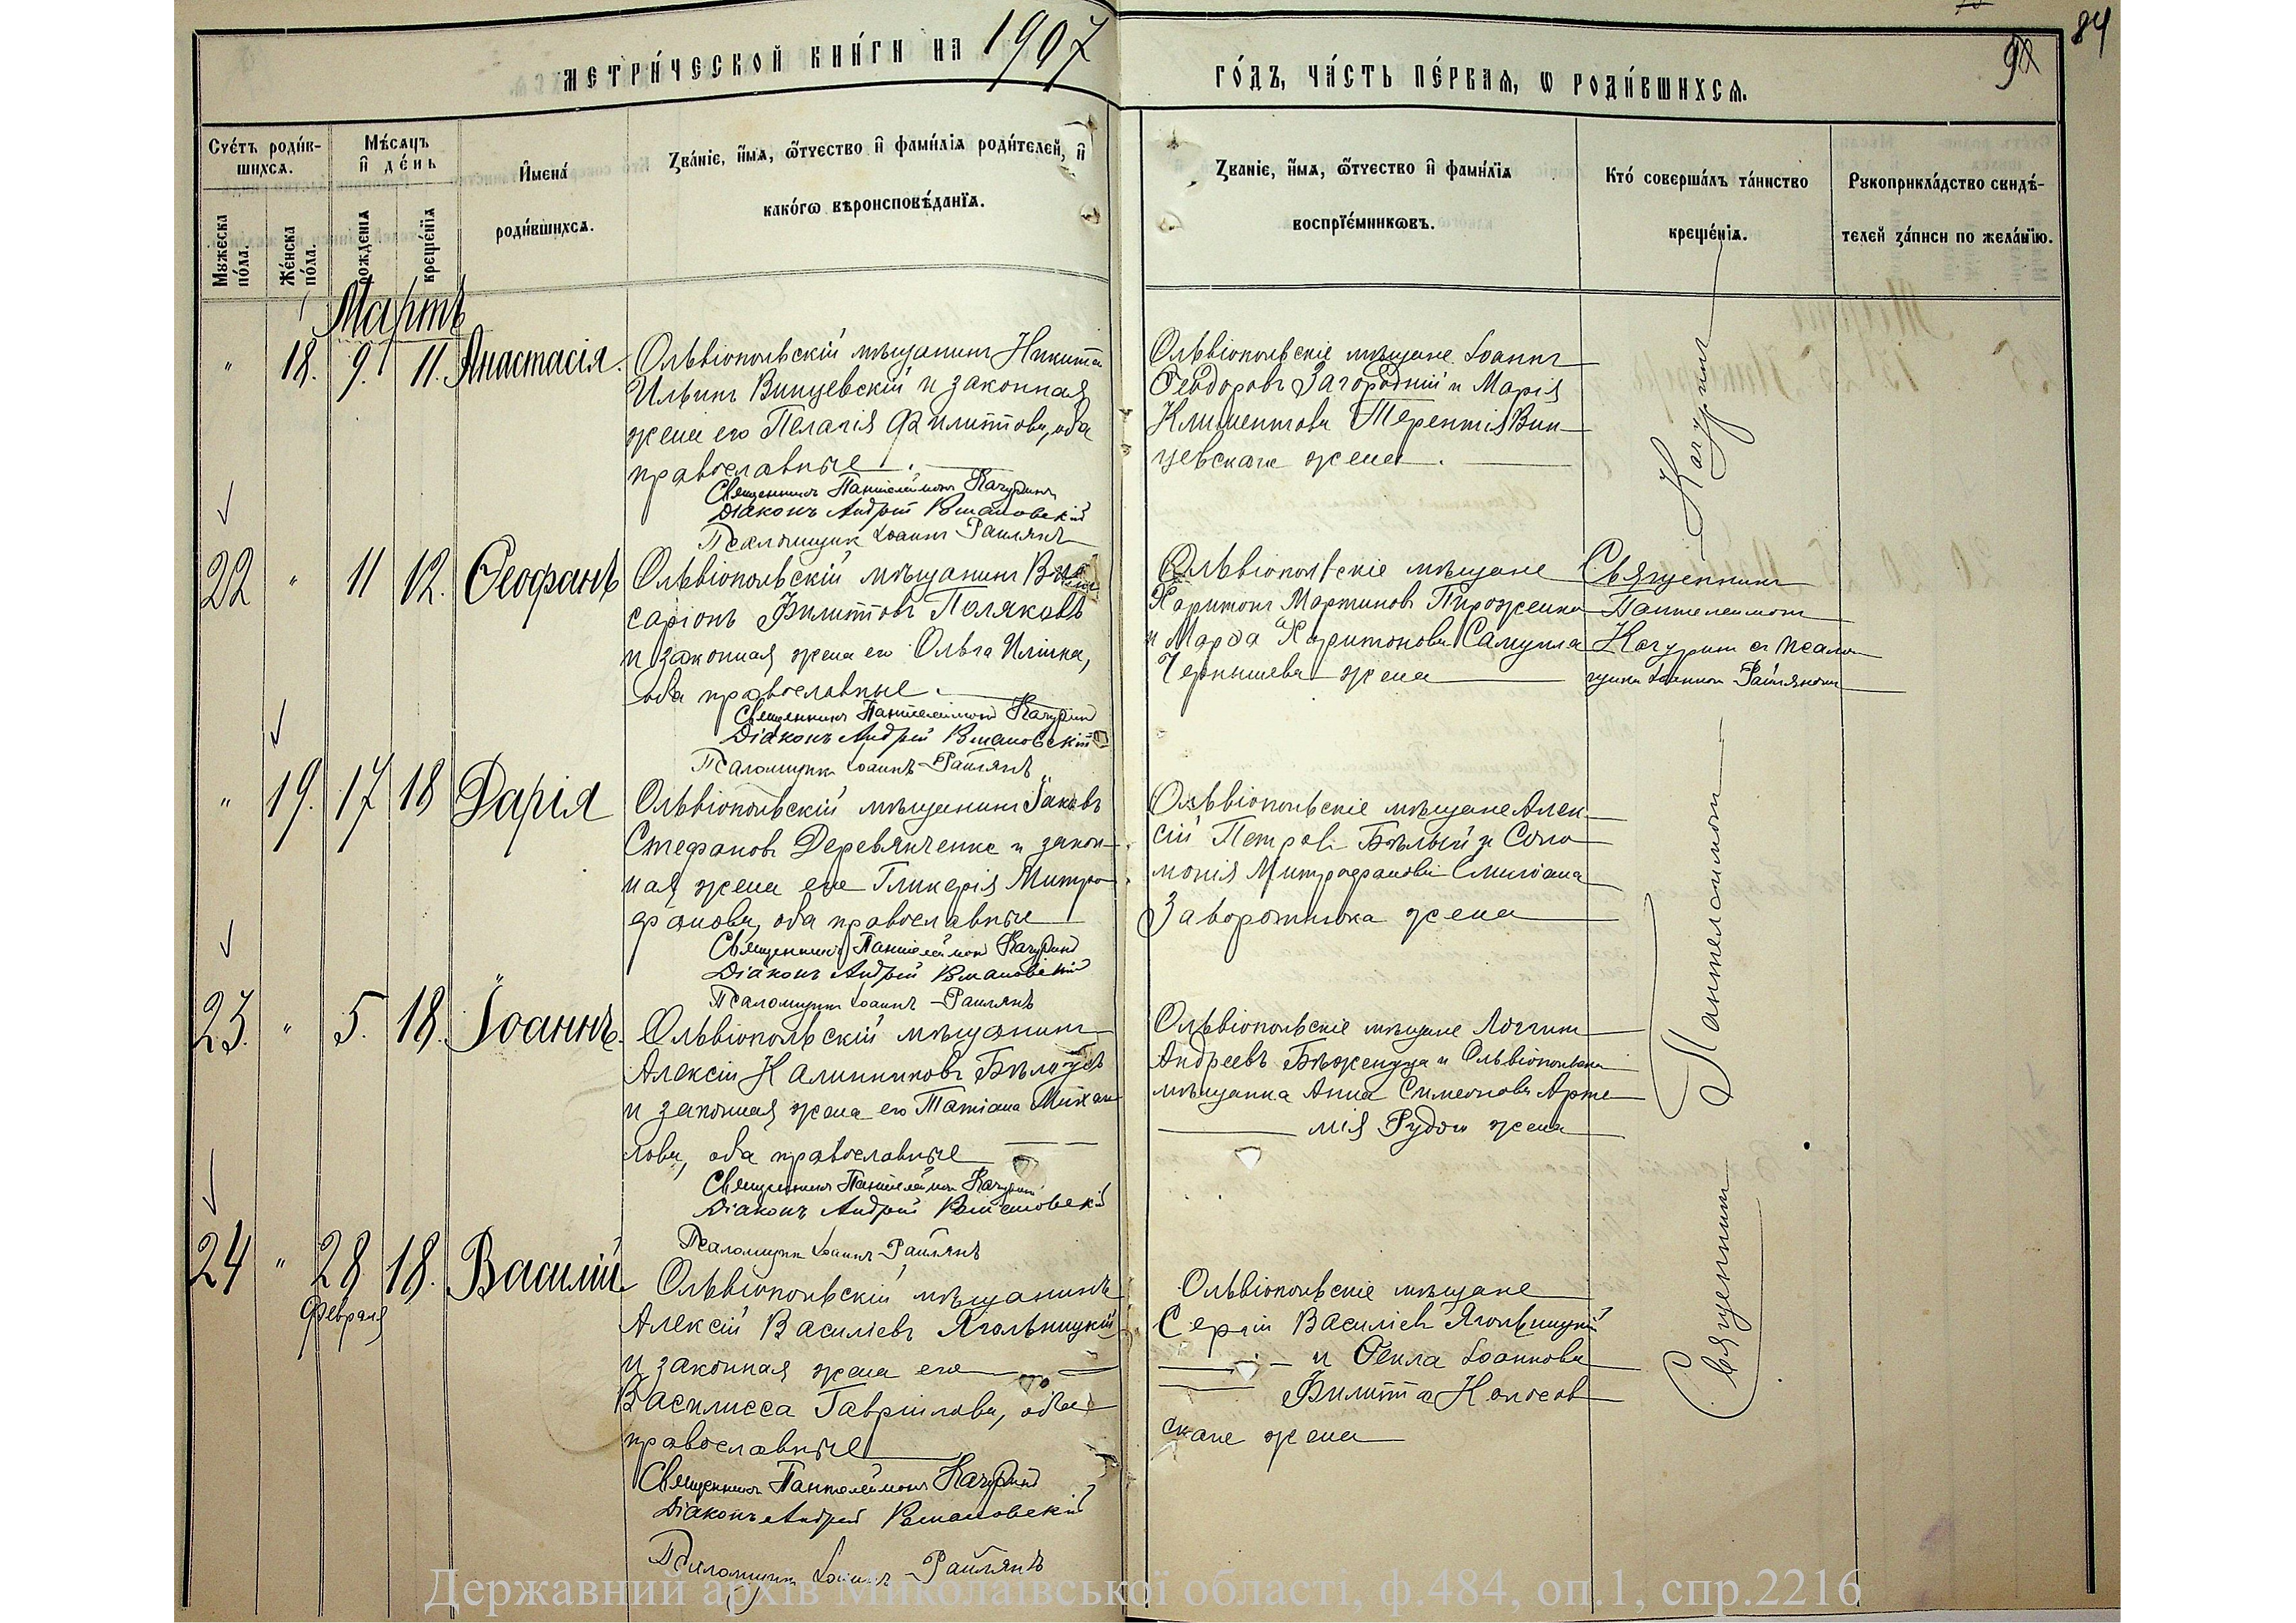 МЕТРИ́ЧЕСКОЙ КНИ́ГИ НА 1907
ГО́ДЪ, ЧА́СТЬ ПЕ́РВАѦ, Ѡ РОДИ́ВШИХСѦ.
84
Сче́тъ роди́в-
шихсѧ.
Мꙋжеска по́ла.
Же́нска по́ла.
Мѣ́сѧцъ
и҆ де́нь
рожденїѧ
креще́нїѧ
И҆мена́
роди́вшихсѧ.
Зва́нїе, и҆́мѧ, ѻ҆́тчество и҆ фами́лїѧ роди́телей, и҆
како́гѡ вѣроисповѣ́данїѧ.
Званїе, и҆́мѧ, ѻ҆́тчество и҆ фами́лїѧ
воспрїе́мникѡвъ.
Кто́ соверша́лъ та́инство
креще́нїѧ.
Рꙋкоприкла́дство свидѣ́-
телей за́писи по жела́нїю.
Мартъ
" 18. 9. 11. Анастасія.
Ольвіопольскій мѣщанинъ Никита
Ильинъ Винцевскій и законная
жена его Пелагія Филиппова, оба
православные.
Священникъ Пантелеймонъ Качуринъ
Діаконъ Андрей Романовскій
Псаломщик Іоаннъ Раилянъ
Ольвіопольскіе мѣщане Іоаннъ
Ѳеодоровъ Загородній и Марія
Климентова Терентія Вин-
цевскаго жена.
22 " 11 12. Ѳеофанъ
Ольвіопольскій мѣщанинъ
саріонъ Филипповъ Поляковъ
и законная жена его Ольга Ильина,
оба православные.
Священникъ Пантелеймонъ Качуринъ
Діаконъ Андрей Романовскій
Псаломщикъ Іоаннъ Раилянъ
Ольвіопольскіе мѣщане
Харитонъ Мартиновъ Пироженко
и Марѳа Харитонова Самуила
Чернышева жена
Священникъ
Пантелеимонъ
Качурин с псалом
щикомъ Іоанном Раиляномъ
" 19. 17 18 Дарія
Ольвіопольскій мѣщанинъ Іаковъ
Стефановъ Деревянченко и закон-
ная жена его Гликерія Митро-
фанова, оба православные
Священникъ Пантелеймонъ Качуринъ
Діаконъ Андрей Романовскій
Псаломщикъ Іоаннъ Раилянъ
Ольвіопольскіе мѣщане Алек-
сій Петровъ Бѣлый и Соло-
монія Митрофанова Емиліана
Заворотнюка жена
23. " 5. 18. Іоаннъ.
Ольвіопольскій мѣщанинъ
Алексій Калинниковъ Бѣлоусъ
и законная жена его Татіана Михаи
лова, оба православные
Священникъ Пантелеймон Качуринъ
Діаконъ Андрей Романовскій
Псаломщикъ Іоаннъ Раилянъ
Ольвіопольскіе мѣщане Логгин
Андреевъ Бѣженуца и Ольвіопольская
мѣщанка Анна Симеонова Арте
мія Рудого жена
24 " 28 18. Василій
Февраля
Ольвіопольскій мѣщанинъ
Алексій Василіевъ Ягольницкій
и законная жена его
Василисса Гавріилова, оба
православные
Священникъ Пантелеймонъ Качуринъ
Діаконъ Андрей Романовскій
Псаломщикъ Іоаннъ Раилянъ
Ольвіопольскіе мѣщане
Сергій Василіев Ягольницкій
и Ѳекла Іоаннова
Филиппа Колосов
скаго жена
Священник Пантелеимон Качурин
Державний архів Миколаївської області, ф.484, оп.1, спр.2216